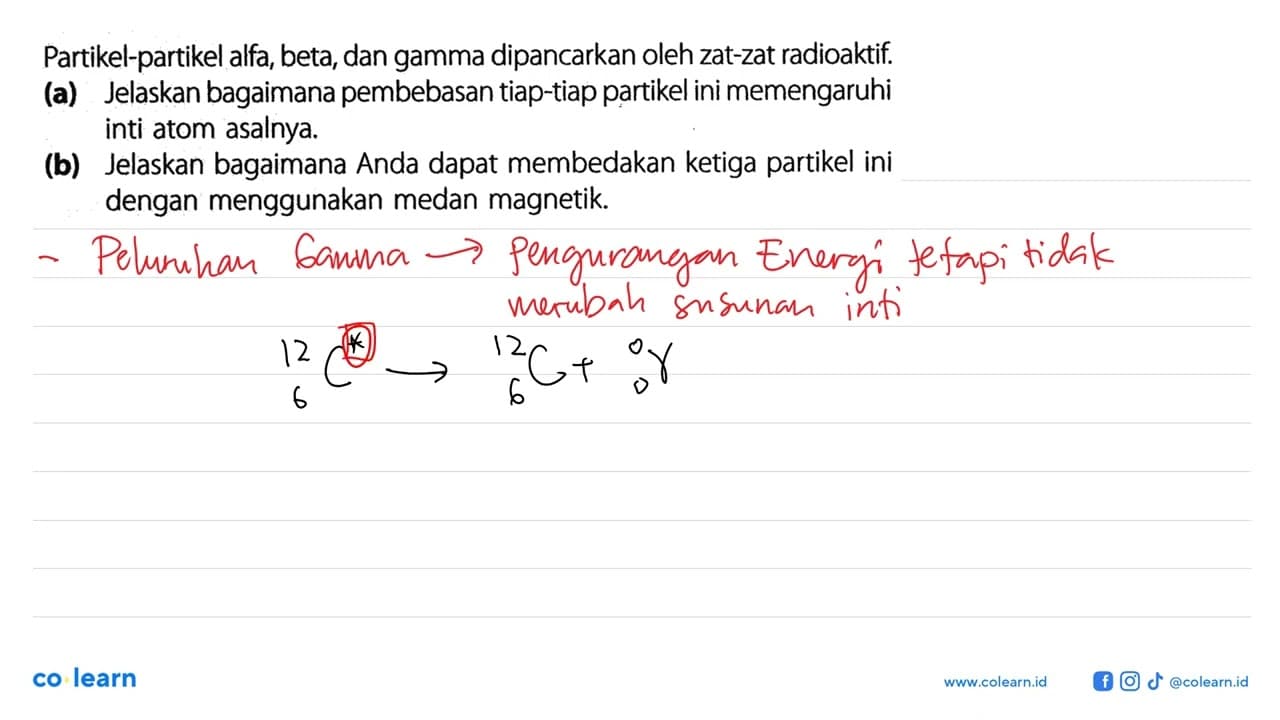 Partikel-partikel alfa, beta, dan gamma dipancarkan oleh zat-zat radioaktif.
(a) Jelaskan bagaimana pembebasan tiap-tiap partikel ini memengaruhi
inti atom asalnya.
(b) Jelaskan bagaimana Anda dapat membedakan ketiga partikel ini
dengan menggunakan medan magnetik.
- Peluruhan Gamma → Pengurangan Energi tetapi tidak
merubah susunan inti
¹²₆C* → ¹²₆C + ⁰₀γ
co learn
www.colearn.id
@colearn.id